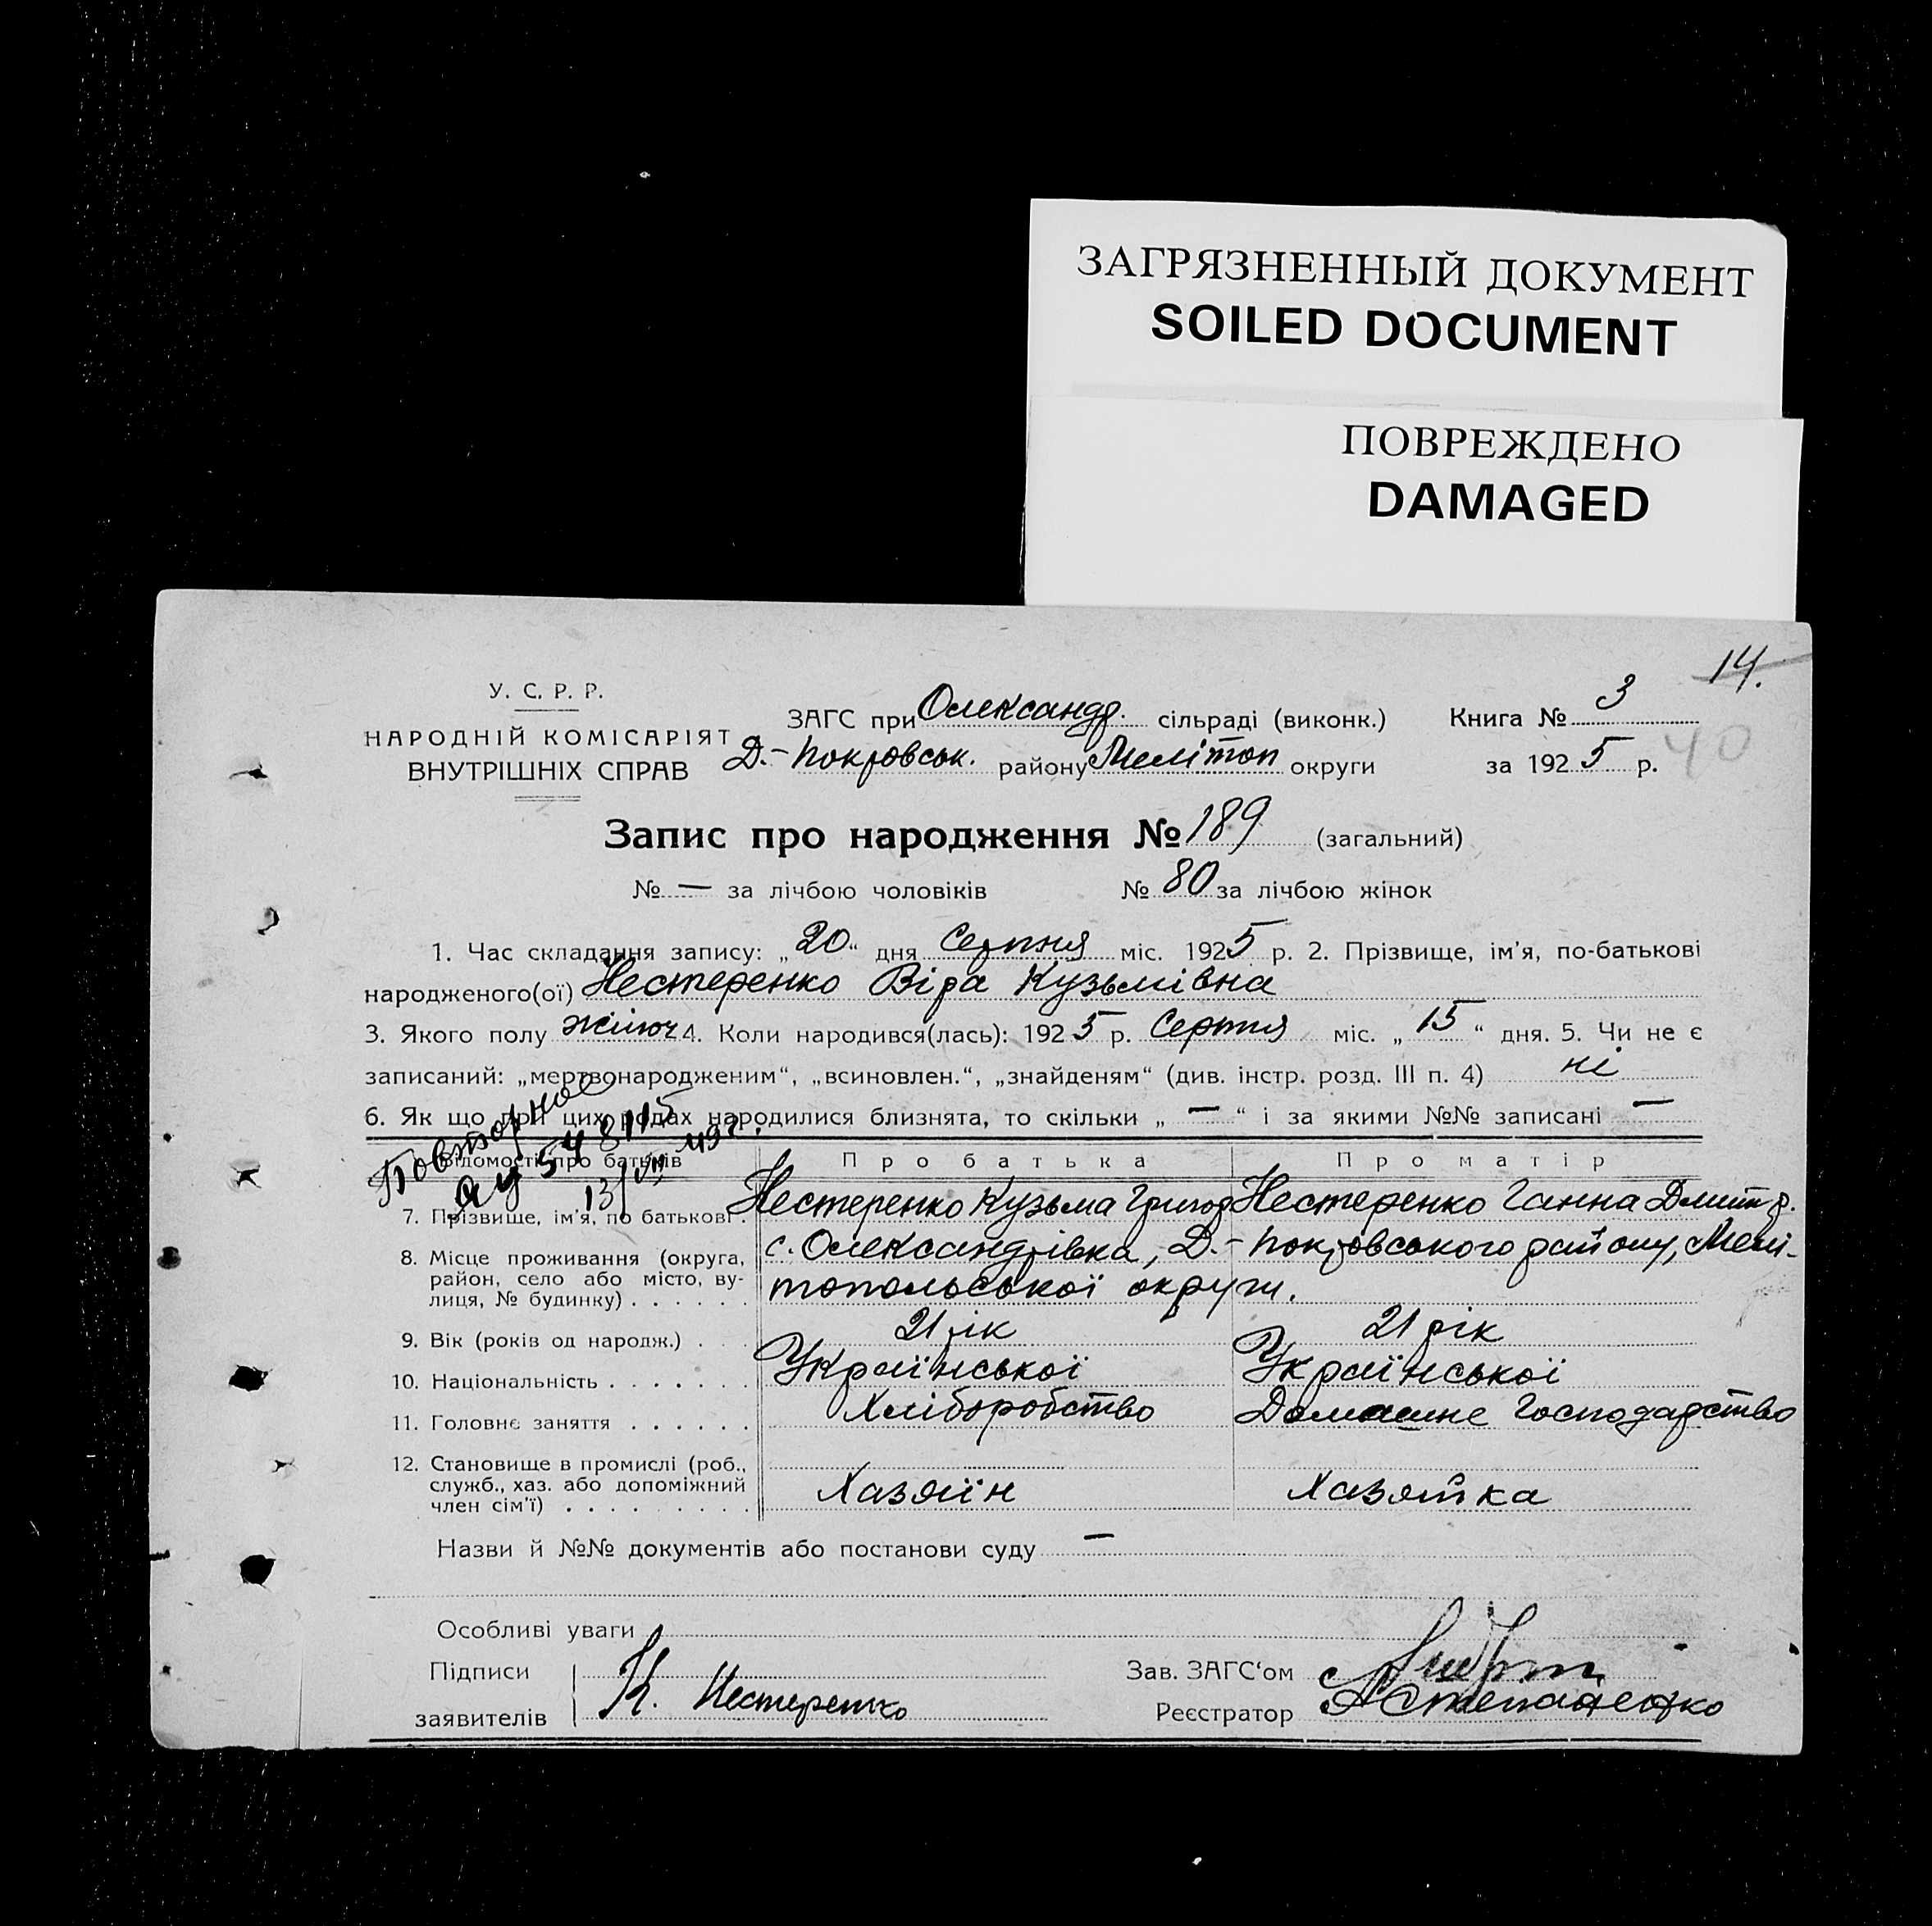 ЗАГРЯЗНЕННЫЙ ДОКУМЕНТ
SOILED DOCUMENT
ПОВРЕЖДЕНО
DAMAGED
14.
У. С. Р. Р.
НАРОДНІЙ КОМІСАРІЯТ
ВНУТРІШНІХ СПРАВ
ЗАГС при Олександр. сільраді (виконк.) Книга № 3
Д.-Покровськ. району Мелітоп округи за 1925 р.
40
Запис про народження № 189 (загальний)
№ — за лічбою чоловіків № 80 за лічбою жінок
1. Час складання запису: „20“ дня Серпня міс. 1925 р. 2. Прізвище, ім'я, по-батькові
народженого(ої) Нестеренко Віра Кузьмівна
3. Якого полу жіноч 4. Коли народився(лась): 1925 р. Серпня міс. „15“ дня. 5. Чи не є
записаний: „мертвонародженим“, „всиновлен.“, „знайденям“ (див. інстр. розд. III п. 4) ні
6. Як що при цих родах народилися близнята, то скільки „—“ і за якими №№ записані —
Повторное
54 8115
13/VII 49г.
Відомості про батьків Про батька Про матір
7. Прізвище, ім'я, по батькові. Нестеренко Кузьма Григор Нестеренко Ганна Дмитр.
8. Місце проживання (округа, с. Олександрівка, Д.-Покровського району, Мелі-
район, село або місто, ву-
лиця, № будинку) . . . . . . топольської округи.
9. Вік (років од народж.) . . . 21 рік 21 рік
10. Національність . . . . . . . Української Української
11. Головнє заняття . . . . . . Хліборобство Домашне Господарство
12. Становище в промислі (роб.,
служб., хаз. або допоміжний Хазяїн Хазяйка
член сім'ї) . . . . . . . . .
Назви й №№ документів або постанови суду —
Особливі уваги
Підписи Зав. ЗАГС'ом
заявителів К. Нестеренко Реєстратор Степаненко